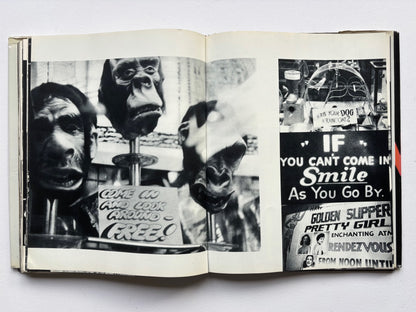 COME IN
AND LOOK
AROUND-
FREE!
YOUR DOG
"IF"
YOU CAN'T COME IN
Smile
AS YOU GO BY.
GOLDEN SLIPPER
PRETTY GIRL
ENCHANTING ATM
RENDEZVOUS
FROM NOON UNTIL